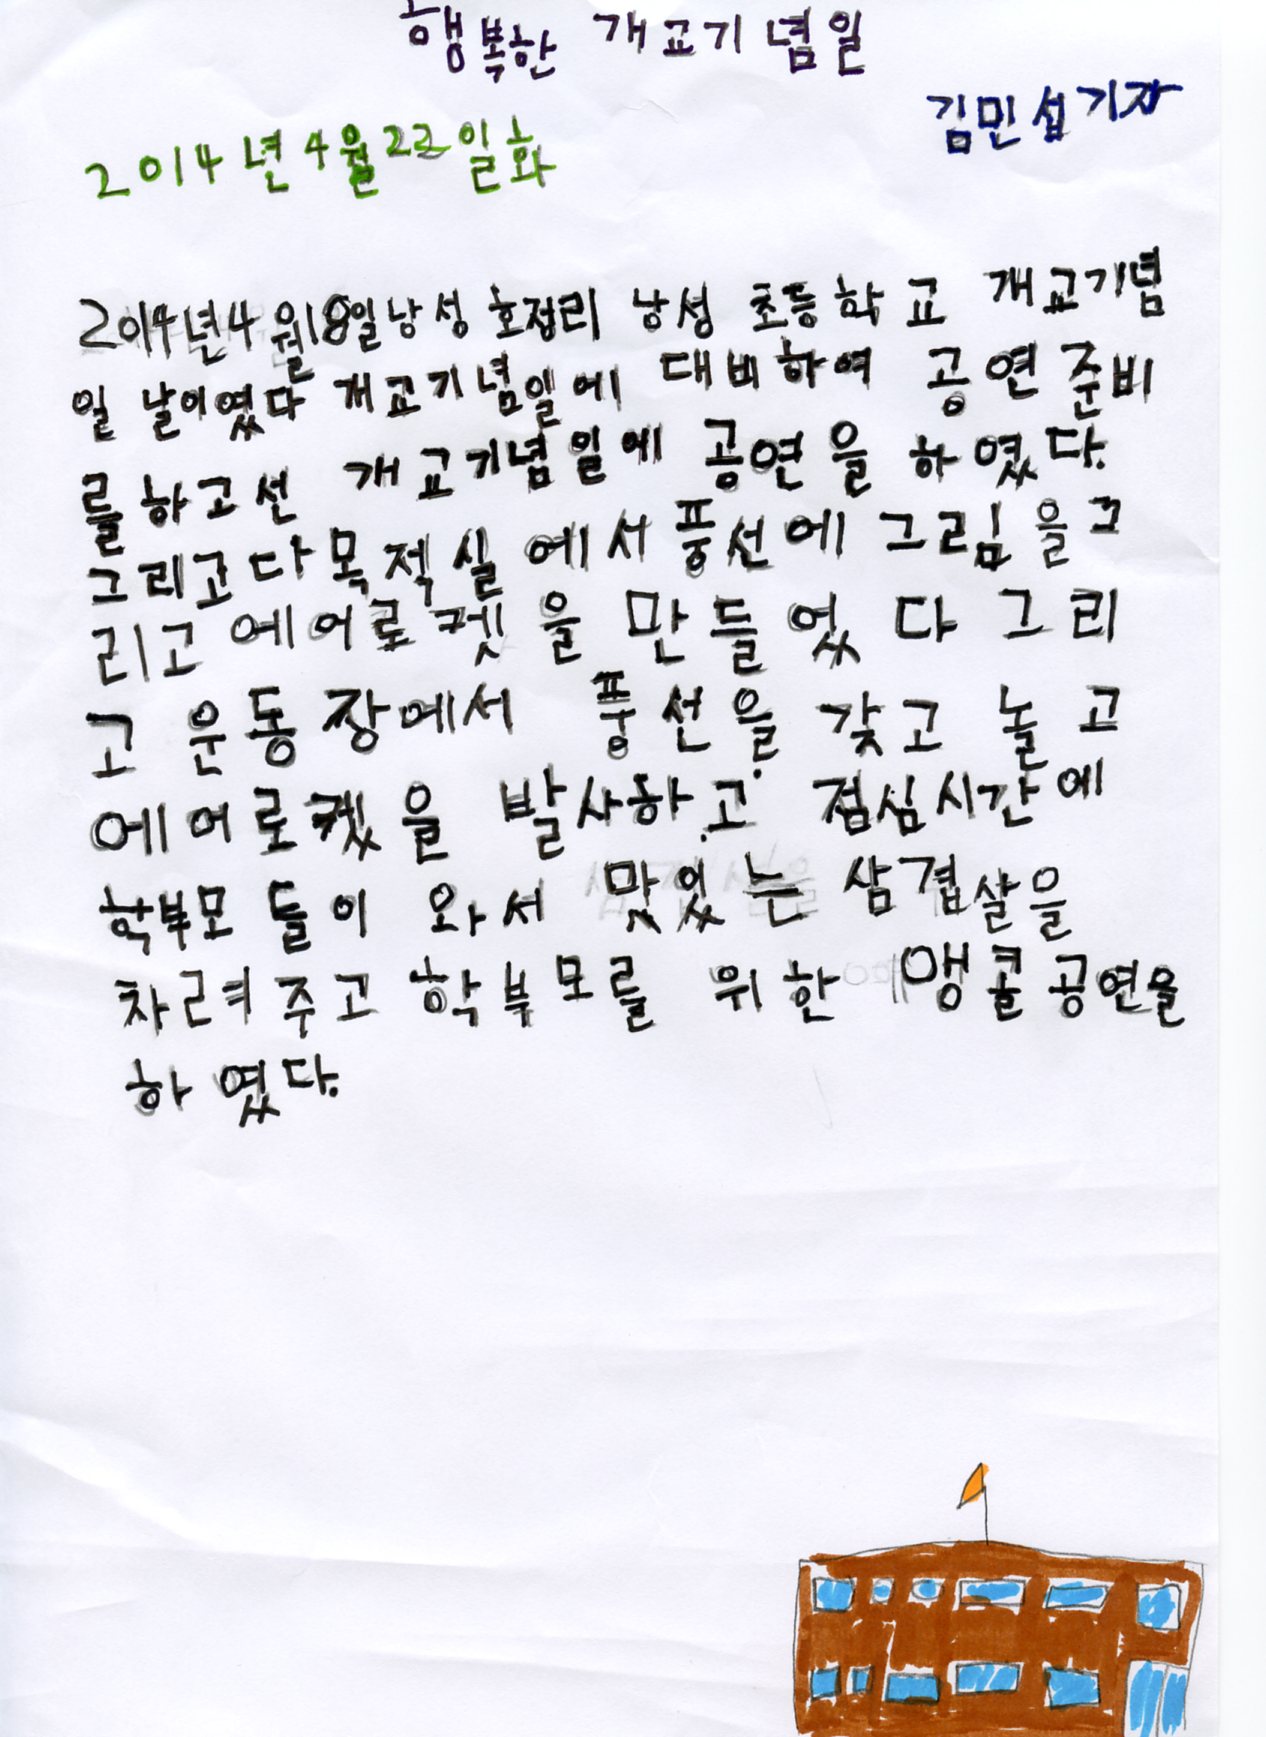 행복한 개교기념일
김민섭기자
2014년4월22일화
2014년4월18일낭성 호정리 낭성 초등학교 개교기념
일 날이였다 개교기념일에 대비하여 공연준비
를하고선 개교기념일에 공연을 하였다.
그리고다목적실에서풍선에그림을그
리고에어로켓을 만들었다 그리
고 운동장에서 풍선을 갖고 놀고
에어로켔을 발사하고 점심시간에
학부모들이 와서 맜있는 삼겹살을
차려주고 학부모를 위한 앵콜공연을
하였다.